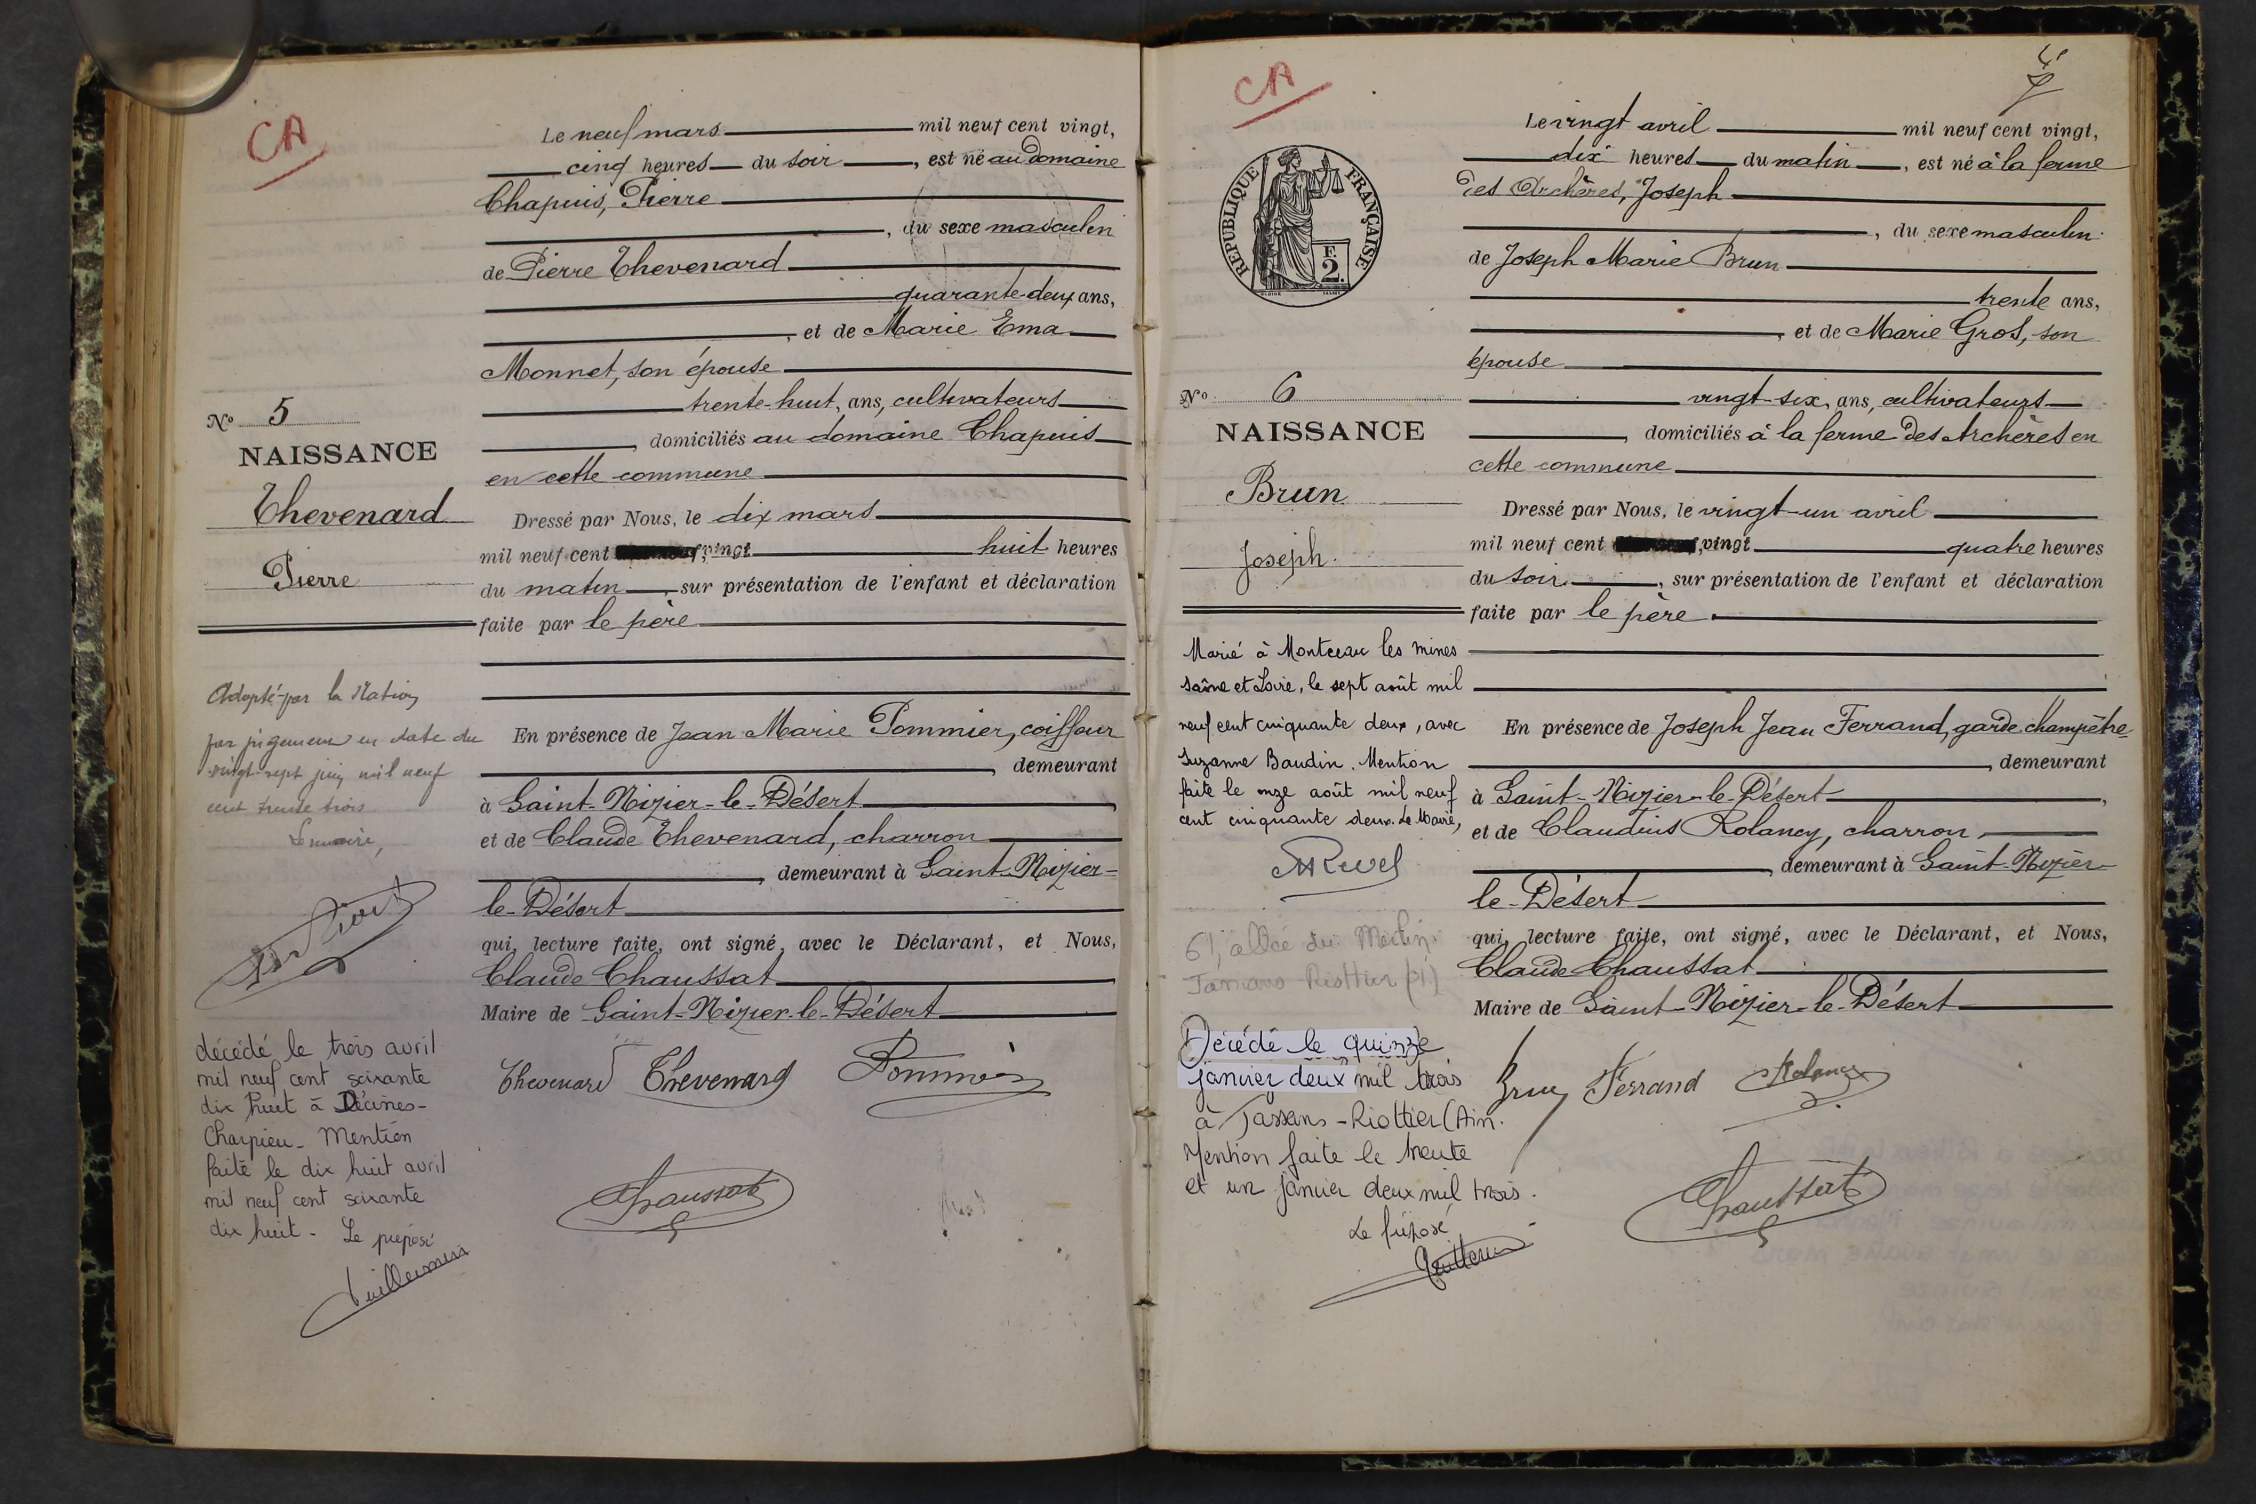 CA
Le neuf mars mil neuf cent vingt,
cinq heures du soir, est né au domaine
Chapuis, Pierre
, du sexe masculin
de Pierre Thevenard
quarante-deux ans,
, et de Marie Ema
Monnet, son épouse
trente-huit, ans, cultivateurs
, domiciliés au domaine Chapuis
en cette commune
Dressé par Nous, le dix mars
mil neuf cent vingt huit heures
du matin, sur présentation de l'enfant et déclaration
faite par le père
En présence de Jean Marie Pommier, coiffeur
, demeurant
à Saint-Nizier-le-Désert,
et de Claude Thevenard, charron
, demeurant à Saint-Nizier-
le-Désert
qui, lecture faite, ont signé, avec le Déclarant, et Nous,
Claude Chaussat
Maire de Saint-Nizier-le-Désert
Thevenard Thevenard Pommier
Chaussat
No 5
NAISSANCE
Thevenard
Pierre
Adopté par la Nation
par jugement en date du
vingt-sept juin mil neuf
cent trente trois
Le maire,
décédé le trois avril
mil neuf cent soixante
dix huit à Décines-
Charpieu_ Mention
faite le dix huit avril
mil neuf cent soixante
dix huit - Le préposé
CA
RÉPUBLIQUE FRANÇAISE
F.
2
Le vingt avril mil neuf cent vingt,
dix heures du matin, est né à la ferme
des Archères, Joseph
, du sexe masculin
de Joseph Marie Brun
trente ans,
, et de Marie Gros, son
épouse
vingt-six, ans, cultivateurs
, domiciliés à la ferme des Archères en
cette commune
Dressé par Nous, le vingt-un avril
mil neuf cent vingt quatre heures
du soir, sur présentation de l'enfant et déclaration
faite par le père.
En présence de Joseph Jean Ferrand, garde champêtre
, demeurant
à Saint-Nizier-le-Désert,
et de Claudius Rolancy, charron,
, demeurant à Saint-Nizier-
le-Désert
qui, lecture faite, ont signé, avec le Déclarant, et Nous,
Claude Chaussat
Maire de Saint-Nizier-le-Désert
Brun Ferrand Rolancy
Chaussat
No 6
NAISSANCE
Brun
Joseph.
Marié à Montceau les mines
Saône et Loire, le sept août mil
neuf cent cinquante deux, avec
Suzanne Baudin. Mention
faite le onze août mil neuf
cent cinquante deux. Le Maire,
61, allée du
Décédé le quinze
janvier deux mil trois
à Jassans-Riottier (Ain.
Mention faite le trente
et un janvier deux mil trois.
Le préposé